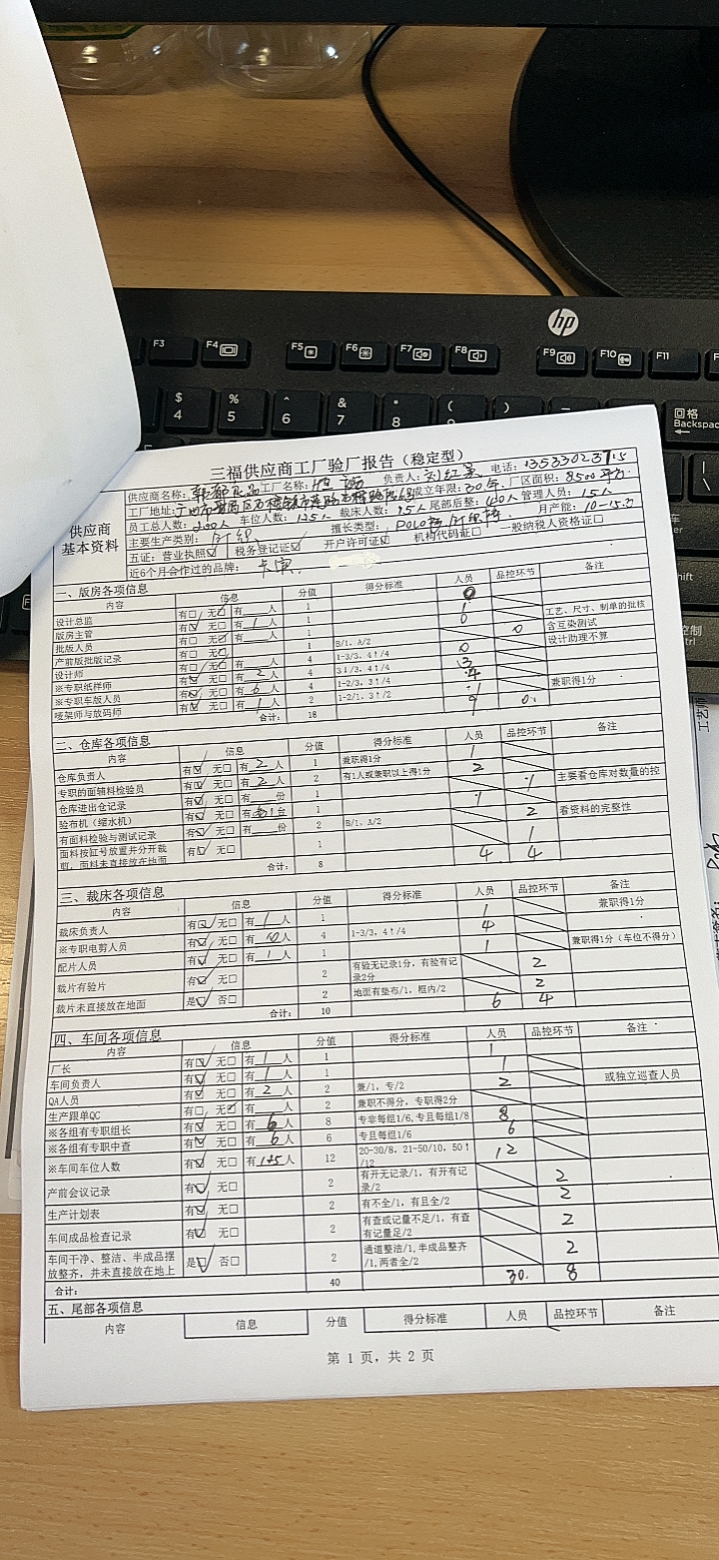 F3 F4 F5 F6 F7 F8 F9 F10 F11
hp
$ 4 % 5 ^ 6 & 7 * 8 ( )
回格
Backspac
三福供应商工厂验厂报告（稳定型）
供应商
基本资料
供应商名称： 工厂名称： 负责人： 电话：
工厂地址： 成立年限：30年 厂区面积：8500平方
员工总人数：200人 车位人数：125人 裁床人数：15人 尾部后整： 管理人员：15人
主要生产类别：针织 擅长类型： 月产能：10-15万
五证：营业执照☑ 税务登记证☑ 开户许可证☑ 机构代码证□ 一般纳税人资格证□
近6个月合作过的品牌：
一、版房各项信息
内容 信息 分值 得分标准 人员 品控环节 备注
设计总监 有□ 无☑ 有 人 1 0
版房主管 有☑ 无□ 有 1 人 1 1
批版人员 有□ 无☑ 有 人 1 0 工艺、尺寸、制单的批核
产前版批版记录 有□ 无☑ 1 B/1，A/2 0 含互染测试
设计师 有□ 无☑ 有 人 4 1-3/3，4↑/4 0 设计助理不算
※专职纸样师 有☑ 无□ 有 2 人 4 3↓/3，4↑/4 3
※专职车版人员 有☑ 无□ 有 6 人 4 1-2/3，3↑/4 4
唛架师与放码师 有☑ 无□ 有 1 人 2 1-2/1，3↑/2 1 兼职得1分
合计： 18 9 0
二、仓库各项信息
内容 信息 分值 得分标准 人员 品控环节 备注
仓库负责人 有☑ 无□ 有 2 人 1 兼职得1分 1
专职的面辅料检验员 有☑ 无□ 有 2 人 2 有1人或兼职以上得1分 2
仓库进出仓记录 有☑ 无□ 有 份 1 1 主要看仓库对数量的控
验布机（缩水机） 有☑ 无□ 有 1 台 1 1
有面料检验与测试记录 有☑ 无□ 有 份 2 B/1，A/2 2 看资料的完整性
面料按缸号放置并分开裁剪，面料未直接放在地面 有☑ 无□ 1 1
合计： 8 4 4
三、裁床各项信息
内容 信息 分值 得分标准 人员 品控环节 备注
裁床负责人 有☑ 无□ 有 1 人 1 1 兼职得1分
※专职电剪人员 有☑ 无□ 有 10 人 4 1-3/3，4↑/4 4
配片人员 有☑ 无□ 有 1 人 1 1 兼职得1分（车位不得分）
裁片有验片 有☑ 无□ 2 有验无记录1分，有验有记录2分 2
裁片未直接放在地面 是☑ 否□ 2 地面有垫布/1，框内/2 2
合计： 10 6 4
四、车间各项信息
内容 信息 分值 得分标准 人员 品控环节 备注
厂长 有☑ 无□ 有 1 人 1 1
车间负责人 有☑ 无□ 有 1 人 1 1
QA人员 有☑ 无□ 有 2 人 2 兼/1，专/2 2 或独立巡查人员
生产跟单QC 有□ 无☑ 有 人 2 兼职不得分，专职得2分
※各组有专职组长 有☑ 无□ 有 6 人 8 专非每组1/6，专且每组1/8 8
※各组有专职中查 有☑ 无□ 有 6 人 6 专且每组1/6 6
※车间车位人数 有☑ 无□ 有 125 人 12 20-30/8，21-50/10，50↑/12 12
产前会议记录 有☑ 无□ 2 有开无记录/1，有开有记录/2 2
生产计划表 有☑ 无□ 2 有不全/1，有且全/2 2
车间成品检查记录 有☑ 无□ 2 有查或记量不足/1，有查有记量足/2 2
车间干净、整洁、半成品摆放整齐，并未直接放在地上 是☑ 否□ 2 通道整洁/1，半成品整齐/1，两者全/2 2
合计： 40 30. 8
五、尾部各项信息
内容 信息 分值 得分标准 人员 品控环节 备注
第 1 页，共 2 页